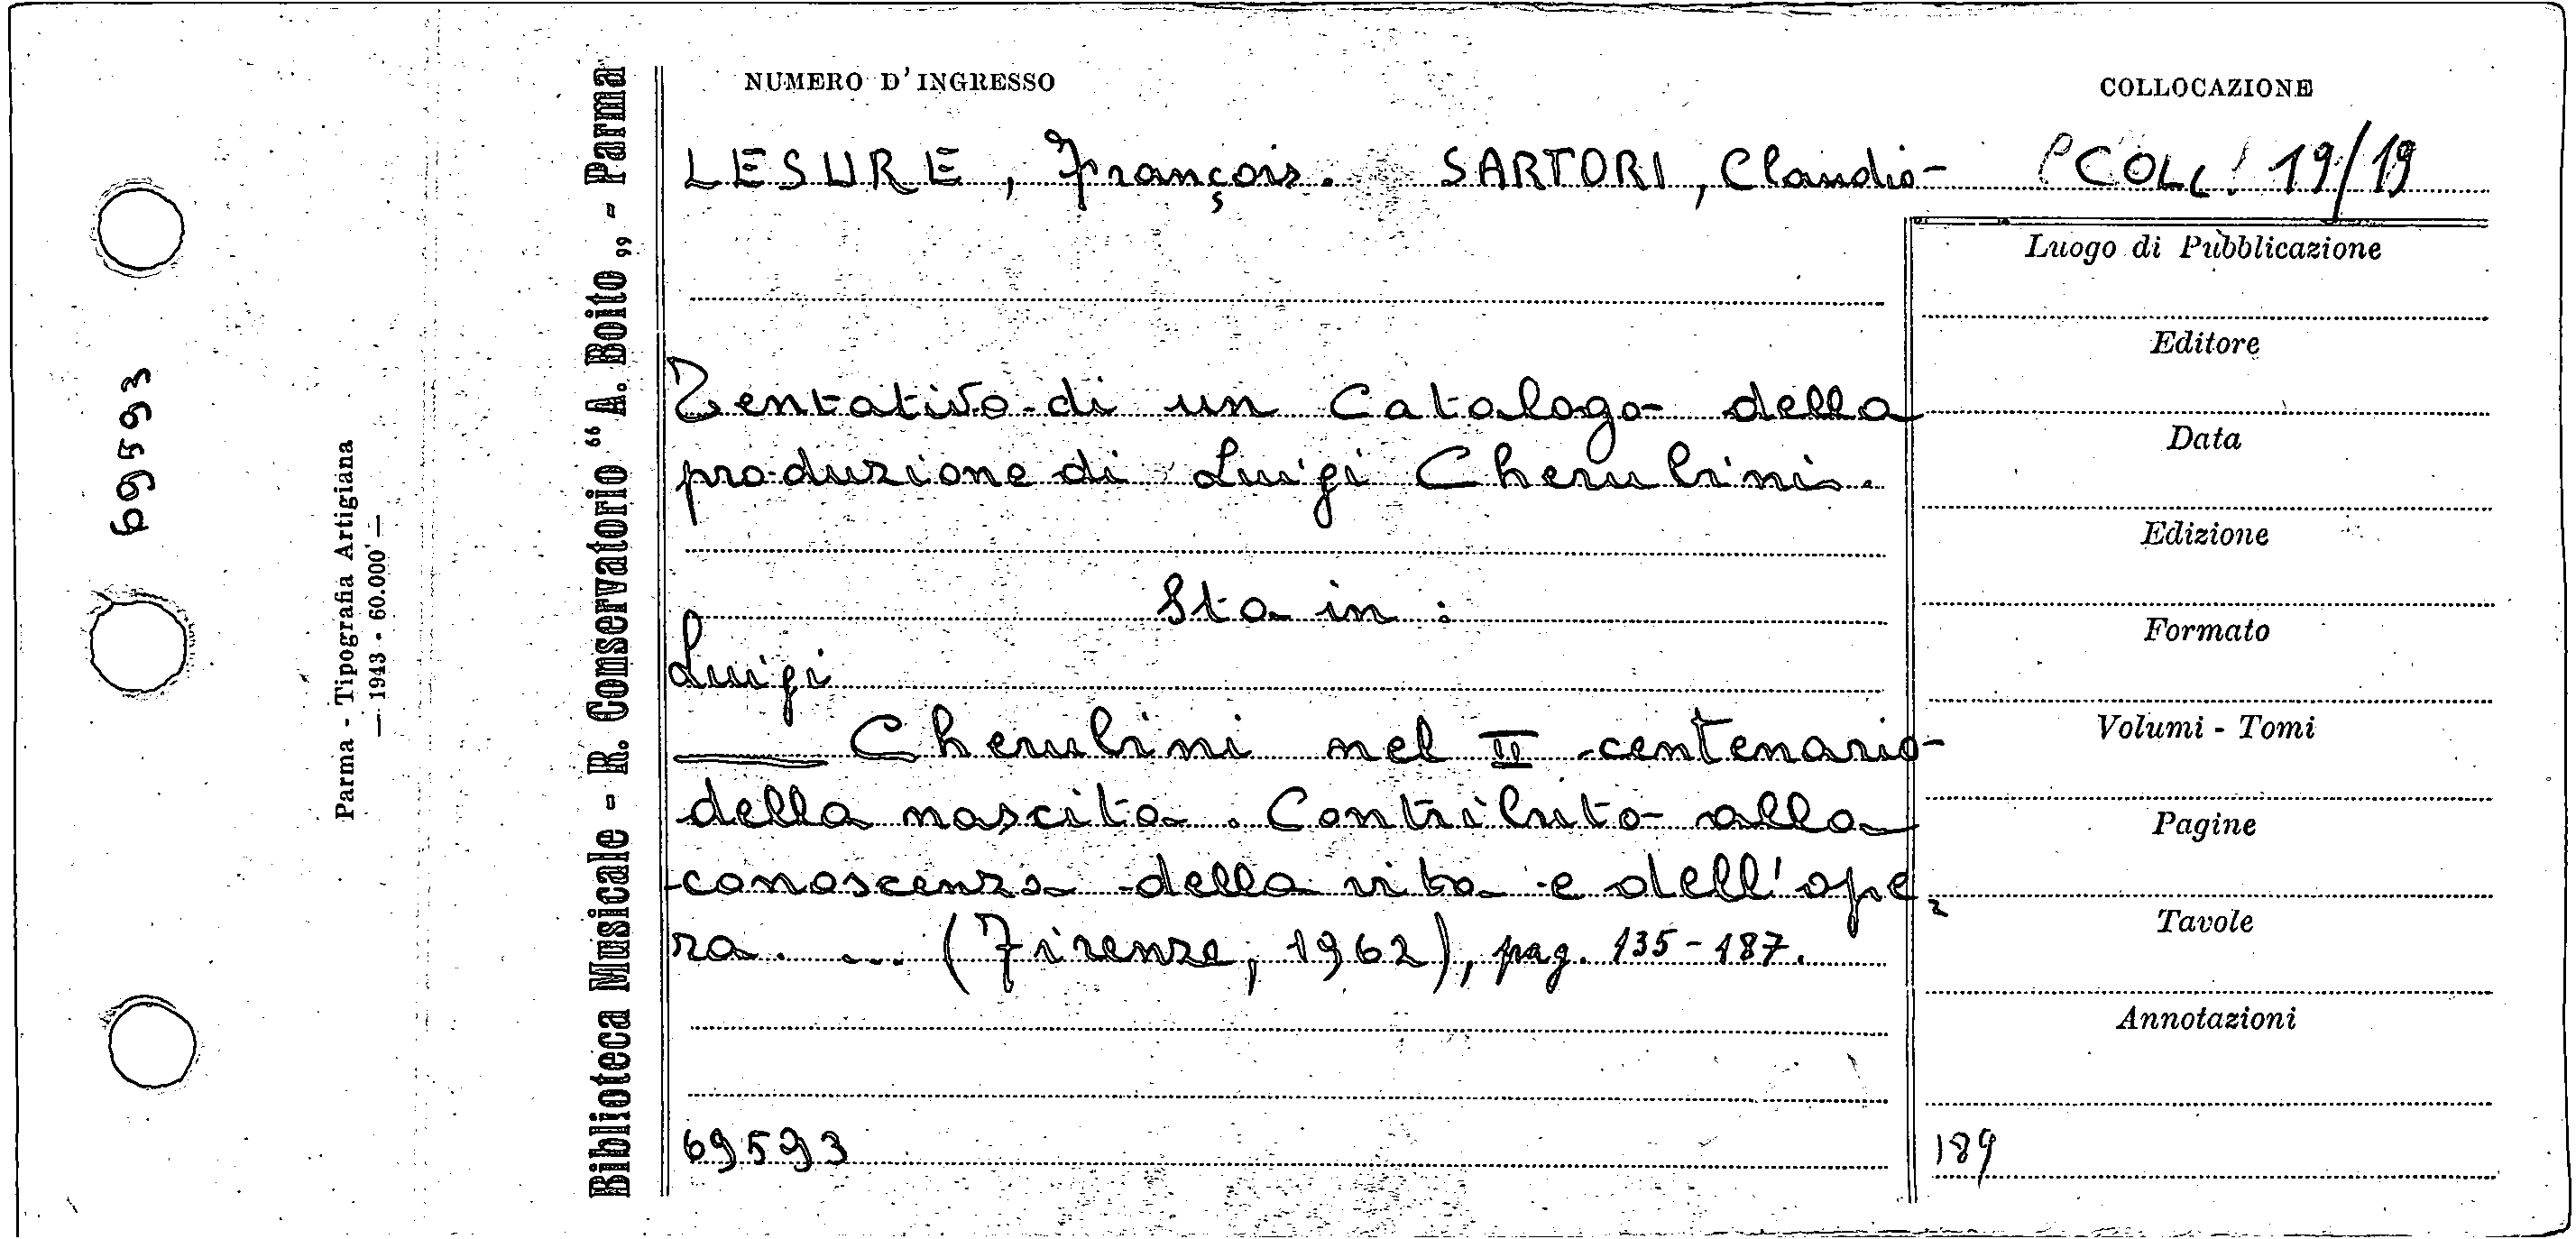 69593
Parma - Tipografia Artigiana
— 1943 - 60.000 —
Biblioteca Musicale - R. Conservatorio “ A. Boito „ - Parma
NUMERO D'INGRESSO
COLLOCAZIONE
LESURE, François. SARTORI, Claudio
COLL. 19/19
Tentativo di un catalogo della
produzione di Luigi Cherubini.
Sta in :
Luigi
Cherubini nel II centenario
della nascita. Contributo alla
conoscenza della vita e dell'ope
ra. ... (Firenze, 1962), pag. 135-187.
69593
Luogo di Pubblicazione
Editore
Data
Edizione
Formato
Volumi - Tomi
Pagine
Tavole
Annotazioni
189